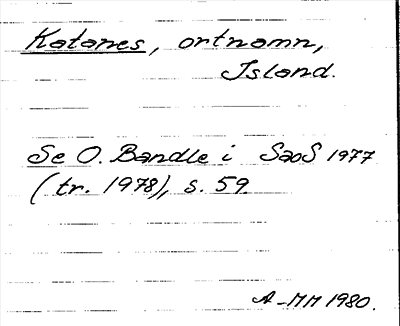 Katanes, ortnamn,
Island.
Se O. Bandle i SaoS 1977
(tr. 1978), s. 59.
A-MM 1980.